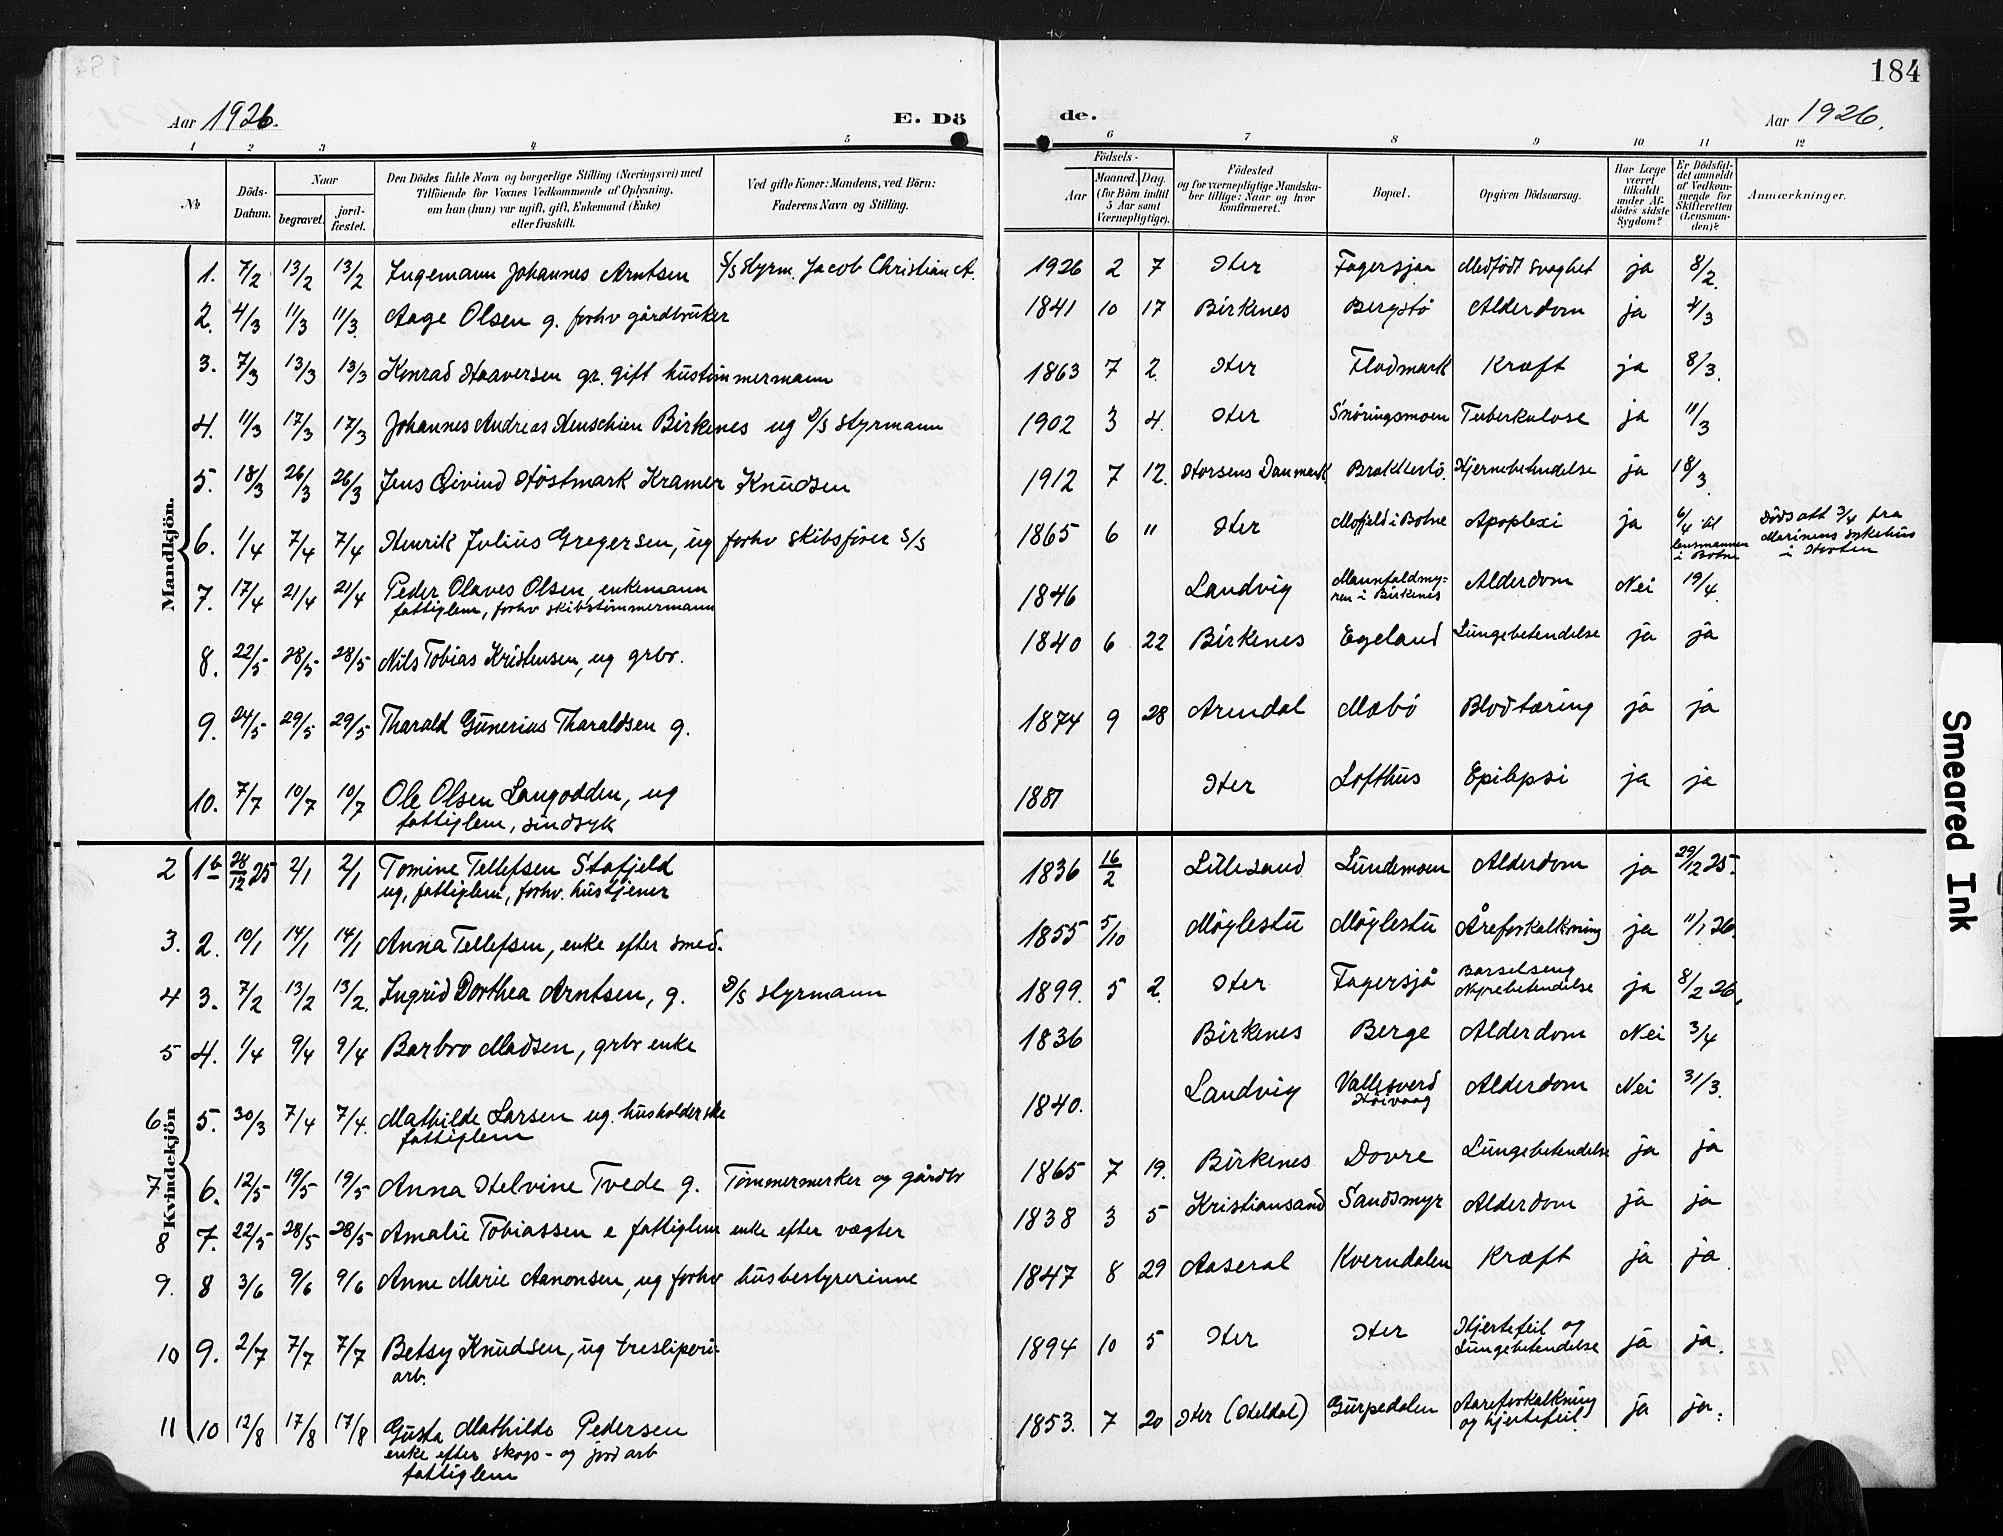 184
Aar 1926. E. Dö de. Aar 1926.
1 2 3 4 5 6 7 8 9 10 11 12
№ Döds-Datum. Naar begravet. jord-fæstet. Den Dödes fulde Navn og borgerlige Stilling (Næringsvei) med Tilföiende for Voxnes Vedkommende af Oplysning, om han (hun) var ugift, gift, Enkemand (Enke) eller fraskilt. Ved gifte Koner: Mandens, ved Börn: Faderens Navn og Stilling. Födsels- Aar Maaned. Dag. (for Börn indtil 5 Aar samt Værnepligtige). Födested og for værnepligtige Mandskaber tillige: Naar og hvor konfirmeret. Bopæl. Opgiven Dödsaarsag. Har Læge været tilkaldt under Afdödes sidste Sygdom? Er Dödsfaldet anmeldt af Vedkommende for Skifteretten (Lensmanden)? Anmærkninger.
Mandkjön.
1. 7/2 13/2 13/2 Ingemann Johannes Arntsen S/S Styrm. Jacob Christian A. 1926 2 7 Her Fagersjaa Medfödt svaghet ja 8/2.
2. 4/3 11/3 11/3. Aage Olsen g. forhv gårdbruker 1841 10 17 Birkenes Bergstö Alderdom ja 4/3
3. 7/3 13/3 13/3 Konrad Haaversen gr. gift hustömmermann 1863 7 2. Her Flodmark Kræft ja 8/3.
4. 11/3 17/3 17/3 Johannes Andreas Henschien Birkenes ug D/S styrmann 1902 3 4. Her Snöringsmoen Tuberkulose ja 11/3
5. 18/3 26/3 26/3 Jens Eivind Höstmark Kramer Knudsen 1912 7 12. Horsens Danmark Brekkestö. Hjernebetendelse ja 18/3.
6. 1/4 7/4 7/4 Henrik Julius Gregersen, ug forhv skibsförer S/S 1865 6 " Her Mofjeld i Botne Apoplexi ja 6/4 til lensmannen i Botne Dödsatt 3/4 fra Marinens sykehus i Horten
7. 17/4 21/4 21/4 Peder Olaves Olsen, enkemann
fattiglem, forhv skibstömmermann 1846 Landvig Mannfaldmyren i Birkenes Alderdom Nei 19/4.
8. 22/5 28/5 28/5 Nils Tobias Kristensen, ug grbr. 1840 6 22 Birkenes Egeland Lungebetendelse ja ja
9. 24/5 29/5 29/5 Tharald Gunerius Tharaldsen g. 1874 9 28 Arendal Mæbö Blodtæring ja ja
10. 7/7 10/7 10/7 Ole Olsen Langodden, ug
fattiglem, sindsyk 1887 Her Lofthus Epilepsi ja ja
Kvindekjön
2 1b 28/12 25 2/1 2/1 Tomine Tellefsen Stofjeld
ug, fattiglem, forhv. hustjener 1836 16/2 Lillesand Lundemoen Alderdom ja 29/12 25.
3. 2. 10/1 14/1 14/1 Anna Tellefsen, enke efter smed. 1855 5/10 Möglestu Möglestu Åreforkalkning ja 11/1 26.
4 3. 7/2 13/2 13/2. Ingrid Dorthea Arntsen, g. D/S styrmann 1899. 5 2. Her Fagersjå Barselseng Nyrebetendelse ja 8/2 26.
5 4. 1/4 9/4 9/4 Barbro Madsen, grbr enke 1836 Birkenes Berge Alderdom Nei 3/4
6 5. 30/3 7/4 7/4. Mathilde Larsen ug. husholderske
fattiglem 1840. Landvig Vallesverd Höivaag Alderdom Nei 31/3.
7 6. 12/5 19/5 19/5 Anna Helvine Tvede g. Tömmermerker og gårdbr 1865 7 19. Birkenes Dovre Lungebetendelse ja ja
8 7. 22/5 28/5 28/5 Amalie Tobiassen e fattiglem enke efter vægter 1838 3 5 Kristiansand Sandsmyr Alderdom ja ja
9. 8 3/6 9/6 9/6 Anne Marie Aanonsen, ug forhv husbestyrerinne 1847 8 29 Aaseral Kverndalen Kræft ja ja.
10 9. 2/7 7/7 7/7 Betsy Knudsen, ug tresliperi-
arb. 1894 10 5 Her Her Hjertefeil og Lungebetendelse ja ja.
11 10 12/8 17/8 17/8 Gusta Mathilde Pedersen
enke efter skogs- og jord arb
fattiglem 1853. 7 20 Her (Heldal) Gurpedalen Aareforkalkning og hjertefeil. ja ja.
Smeared Ink